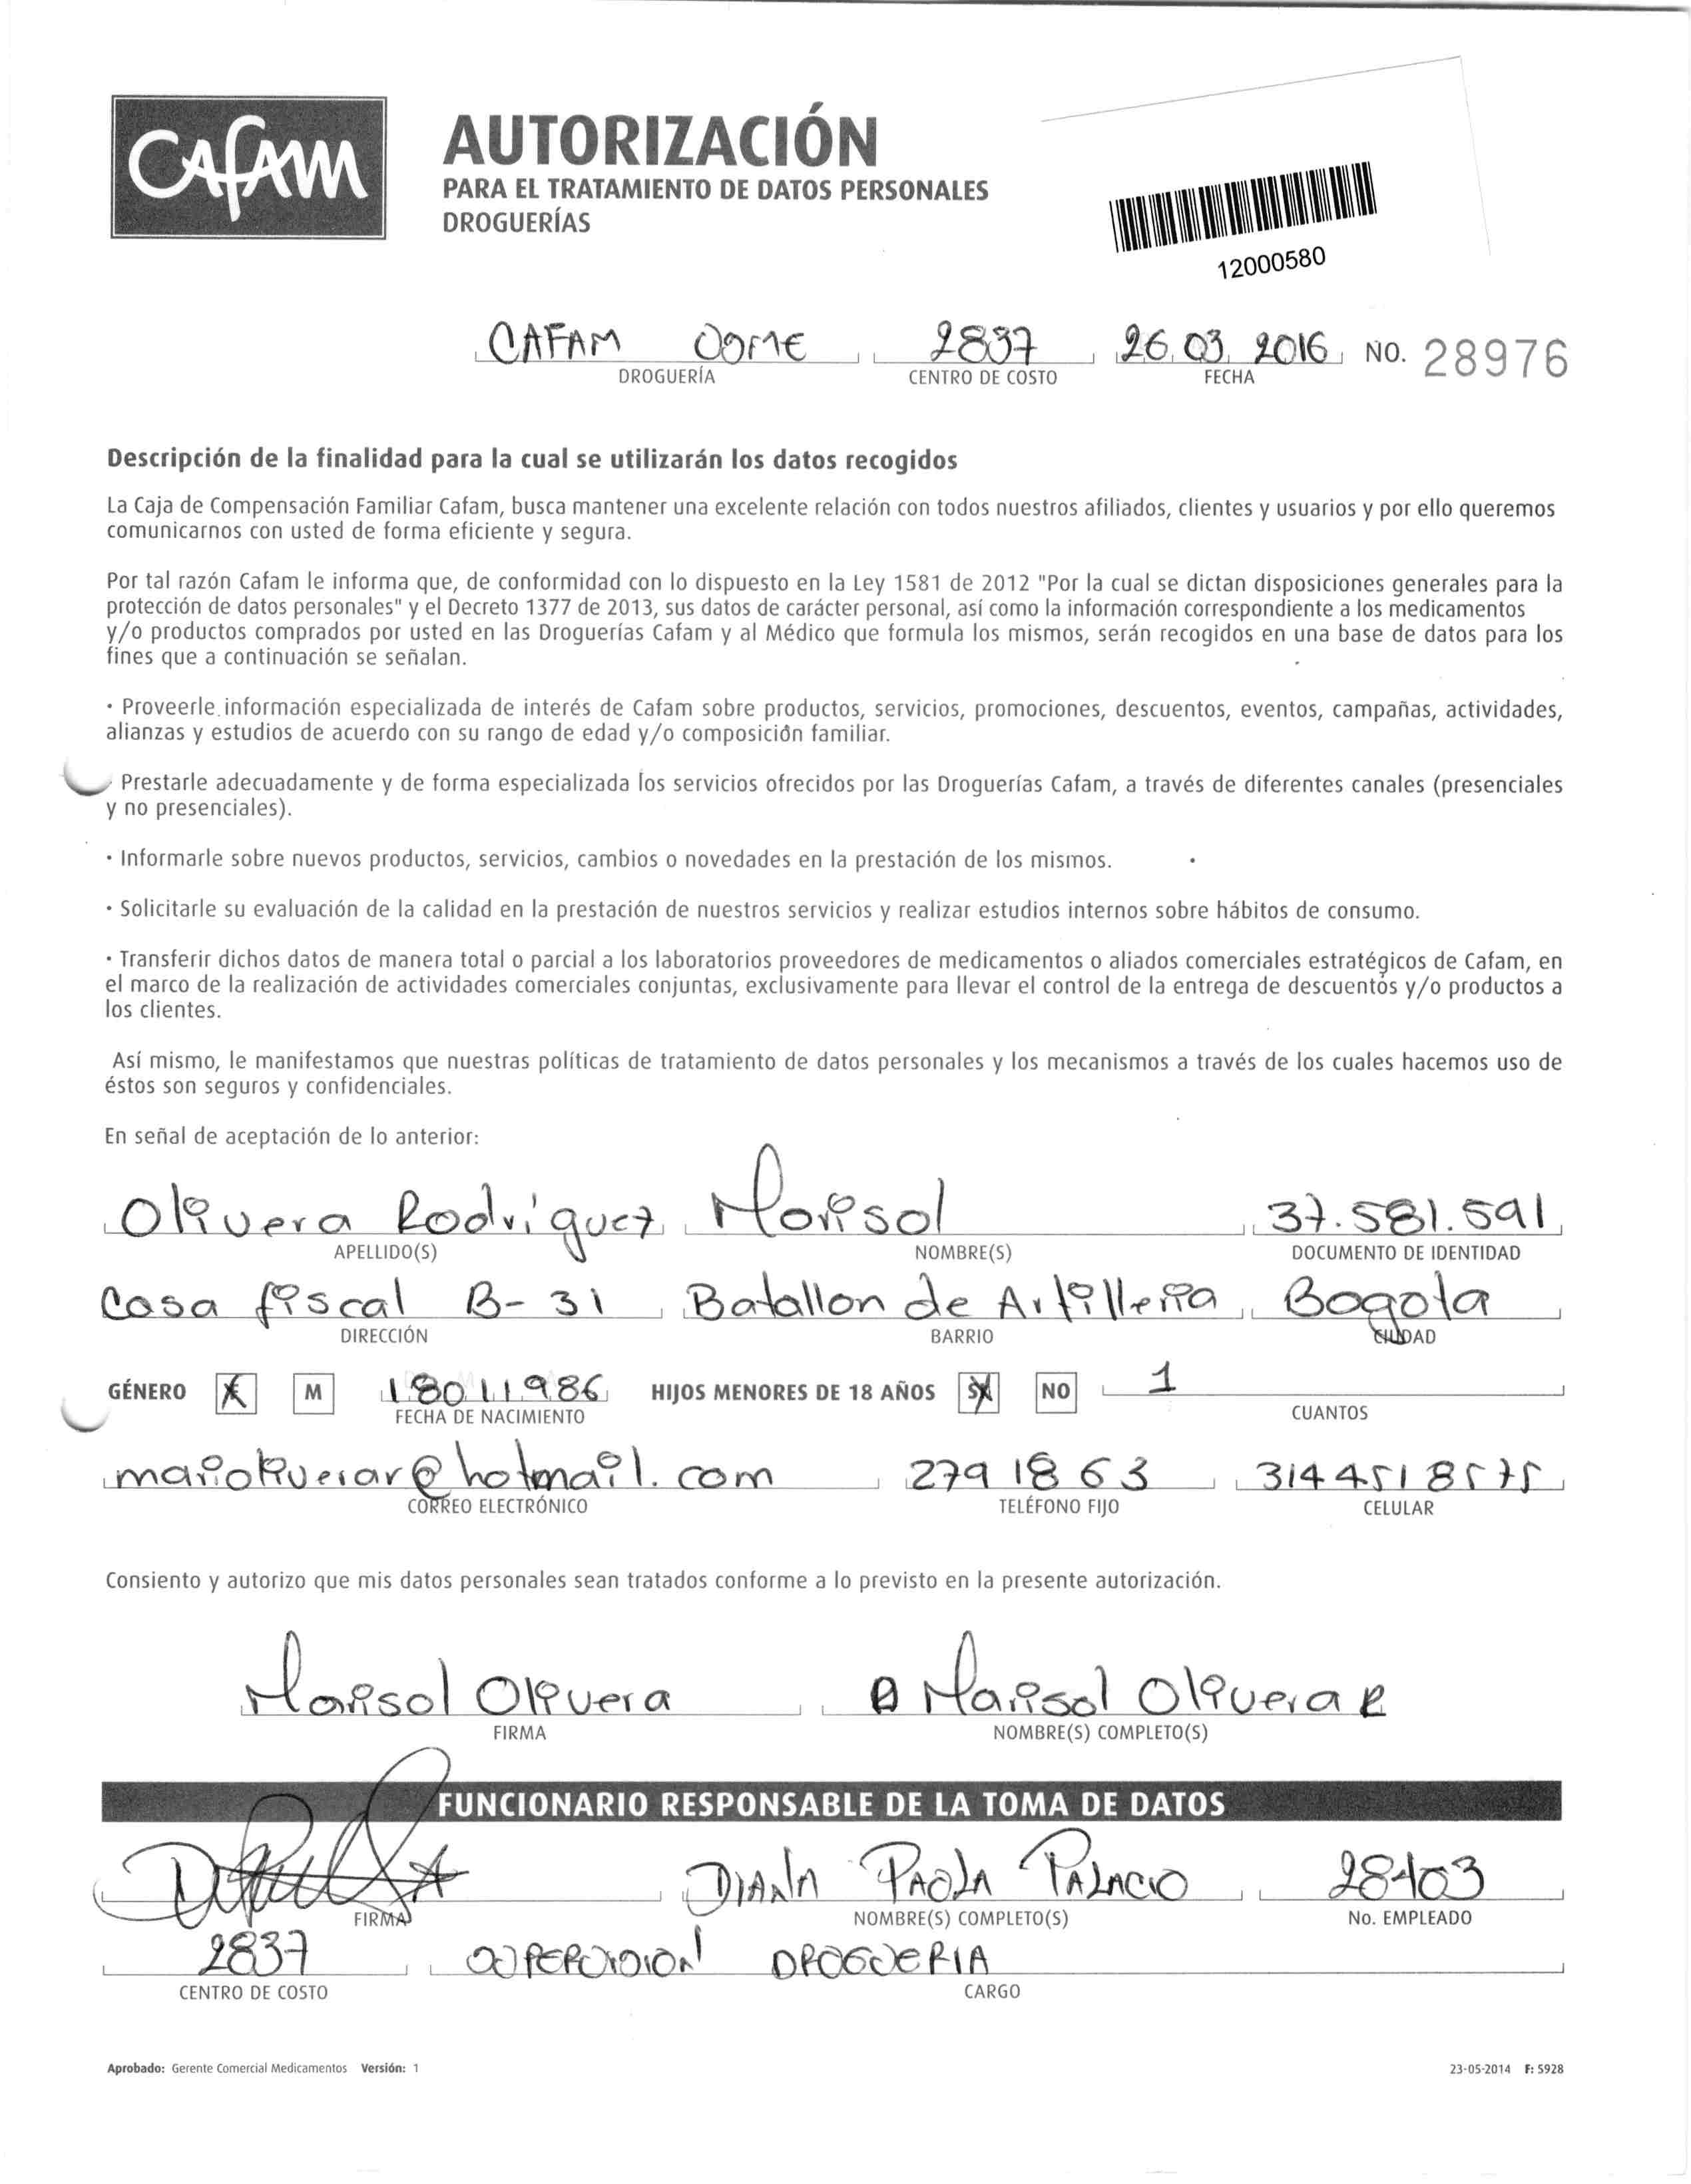 CAFAM
AUTORIZACIÓN
PARA EL TRATAMIENTO DE DATOS PERSONALES
DROGUERÍAS
12000580
CAFAM 2837 26 03 2016 NO. 28976
DROGUERÍA CENTRO DE COSTO FECHA
Descripción de la finalidad para la cual se utilizarán los datos recogidos
La Caja de Compensación Familiar Cafam, busca mantener una excelente relación con todos nuestros afiliados, clientes y usuarios y por ello queremos
comunicarnos con usted de forma eficiente y segura.
Por tal razón Cafam le informa que, de conformidad con lo dispuesto en la Ley 1581 de 2012 "Por la cual se dictan disposiciones generales para la
protección de datos personales" y el Decreto 1377 de 2013, sus datos de carácter personal, así como la información correspondiente a los medicamentos
y/o productos comprados por usted en las Droguerías Cafam y al Médico que formula los mismos, serán recogidos en una base de datos para los
fines que a continuación se señalan.
· Proveerle información especializada de interés de Cafam sobre productos, servicios, promociones, descuentos, eventos, campañas, actividades,
alianzas y estudios de acuerdo con su rango de edad y/o composición familiar.
· Prestarle adecuadamente y de forma especializada los servicios ofrecidos por las Droguerías Cafam, a través de diferentes canales (presenciales
y no presenciales).
· Informarle sobre nuevos productos, servicios, cambios o novedades en la prestación de los mismos.
· Solicitarle su evaluación de la calidad en la prestación de nuestros servicios y realizar estudios internos sobre hábitos de consumo.
· Transferir dichos datos de manera total o parcial a los laboratorios proveedores de medicamentos o aliados comerciales estratégicos de Cafam, en
el marco de la realización de actividades comerciales conjuntas, exclusivamente para llevar el control de la entrega de descuentos y/o productos a
los clientes.
Así mismo, le manifestamos que nuestras políticas de tratamiento de datos personales y los mecanismos a través de los cuales hacemos uso de
éstos son seguros y confidenciales.
En señal de aceptación de lo anterior:
Olivera Rodriguez Marisol 37.581.591
APELLIDO(S) NOMBRE(S) DOCUMENTO DE IDENTIDAD
Casa fiscal B-31 Batallon de Artilleria Bogota
DIRECCIÓN BARRIO CIUDAD
GÉNERO X M 18011986 HIJOS MENORES DE 18 AÑOS SI X NO 1
FECHA DE NACIMIENTO CUANTOS
marioliverar@hotmail.com 279 18 63 314 451 8575
CORREO ELECTRÓNICO TELÉFONO FIJO CELULAR
Consiento y autorizo que mis datos personales sean tratados conforme a lo previsto en la presente autorización.
Marisol Olivera Marisol Olivera R
FIRMA NOMBRE(S) COMPLETO(S)
FUNCIONARIO RESPONSABLE DE LA TOMA DE DATOS
DIANA PAOLA PALACIO 28403
FIRMA NOMBRE(S) COMPLETO(S) No. EMPLEADO
2837 DROGUERIA
CENTRO DE COSTO CARGO
Aprobado: Gerente Comercial Medicamentos Versión: 1 23-05-2014 F: 5928